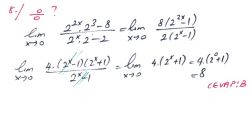 8-/ 0/0 ?
lim x→0 2^2x . 2^3 - 8 / 2^x . 2 - 2 = lim x→0 8(2^2x - 1) / 2(2^x - 1)
lim x→0 4.(2^x - 1)(2^x + 1) / 2^x - 1 = lim x→0 4.(2^x + 1) = 4.(2^0 + 1)
= 8
CEVAP: B